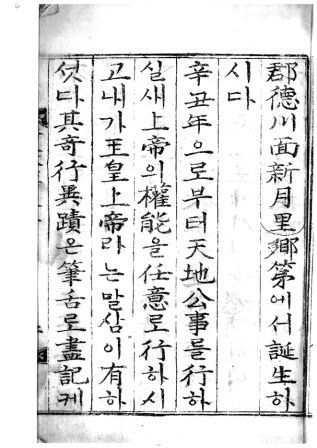 郡德川面新月里鄕第에서誕生하
시다
辛丑年으로부터天地公事를行하
실새上帝의權能을任意로行하시
고내가玉皇上帝라는말삼이有하
섯다其奇行異蹟은筆舌로盡記케